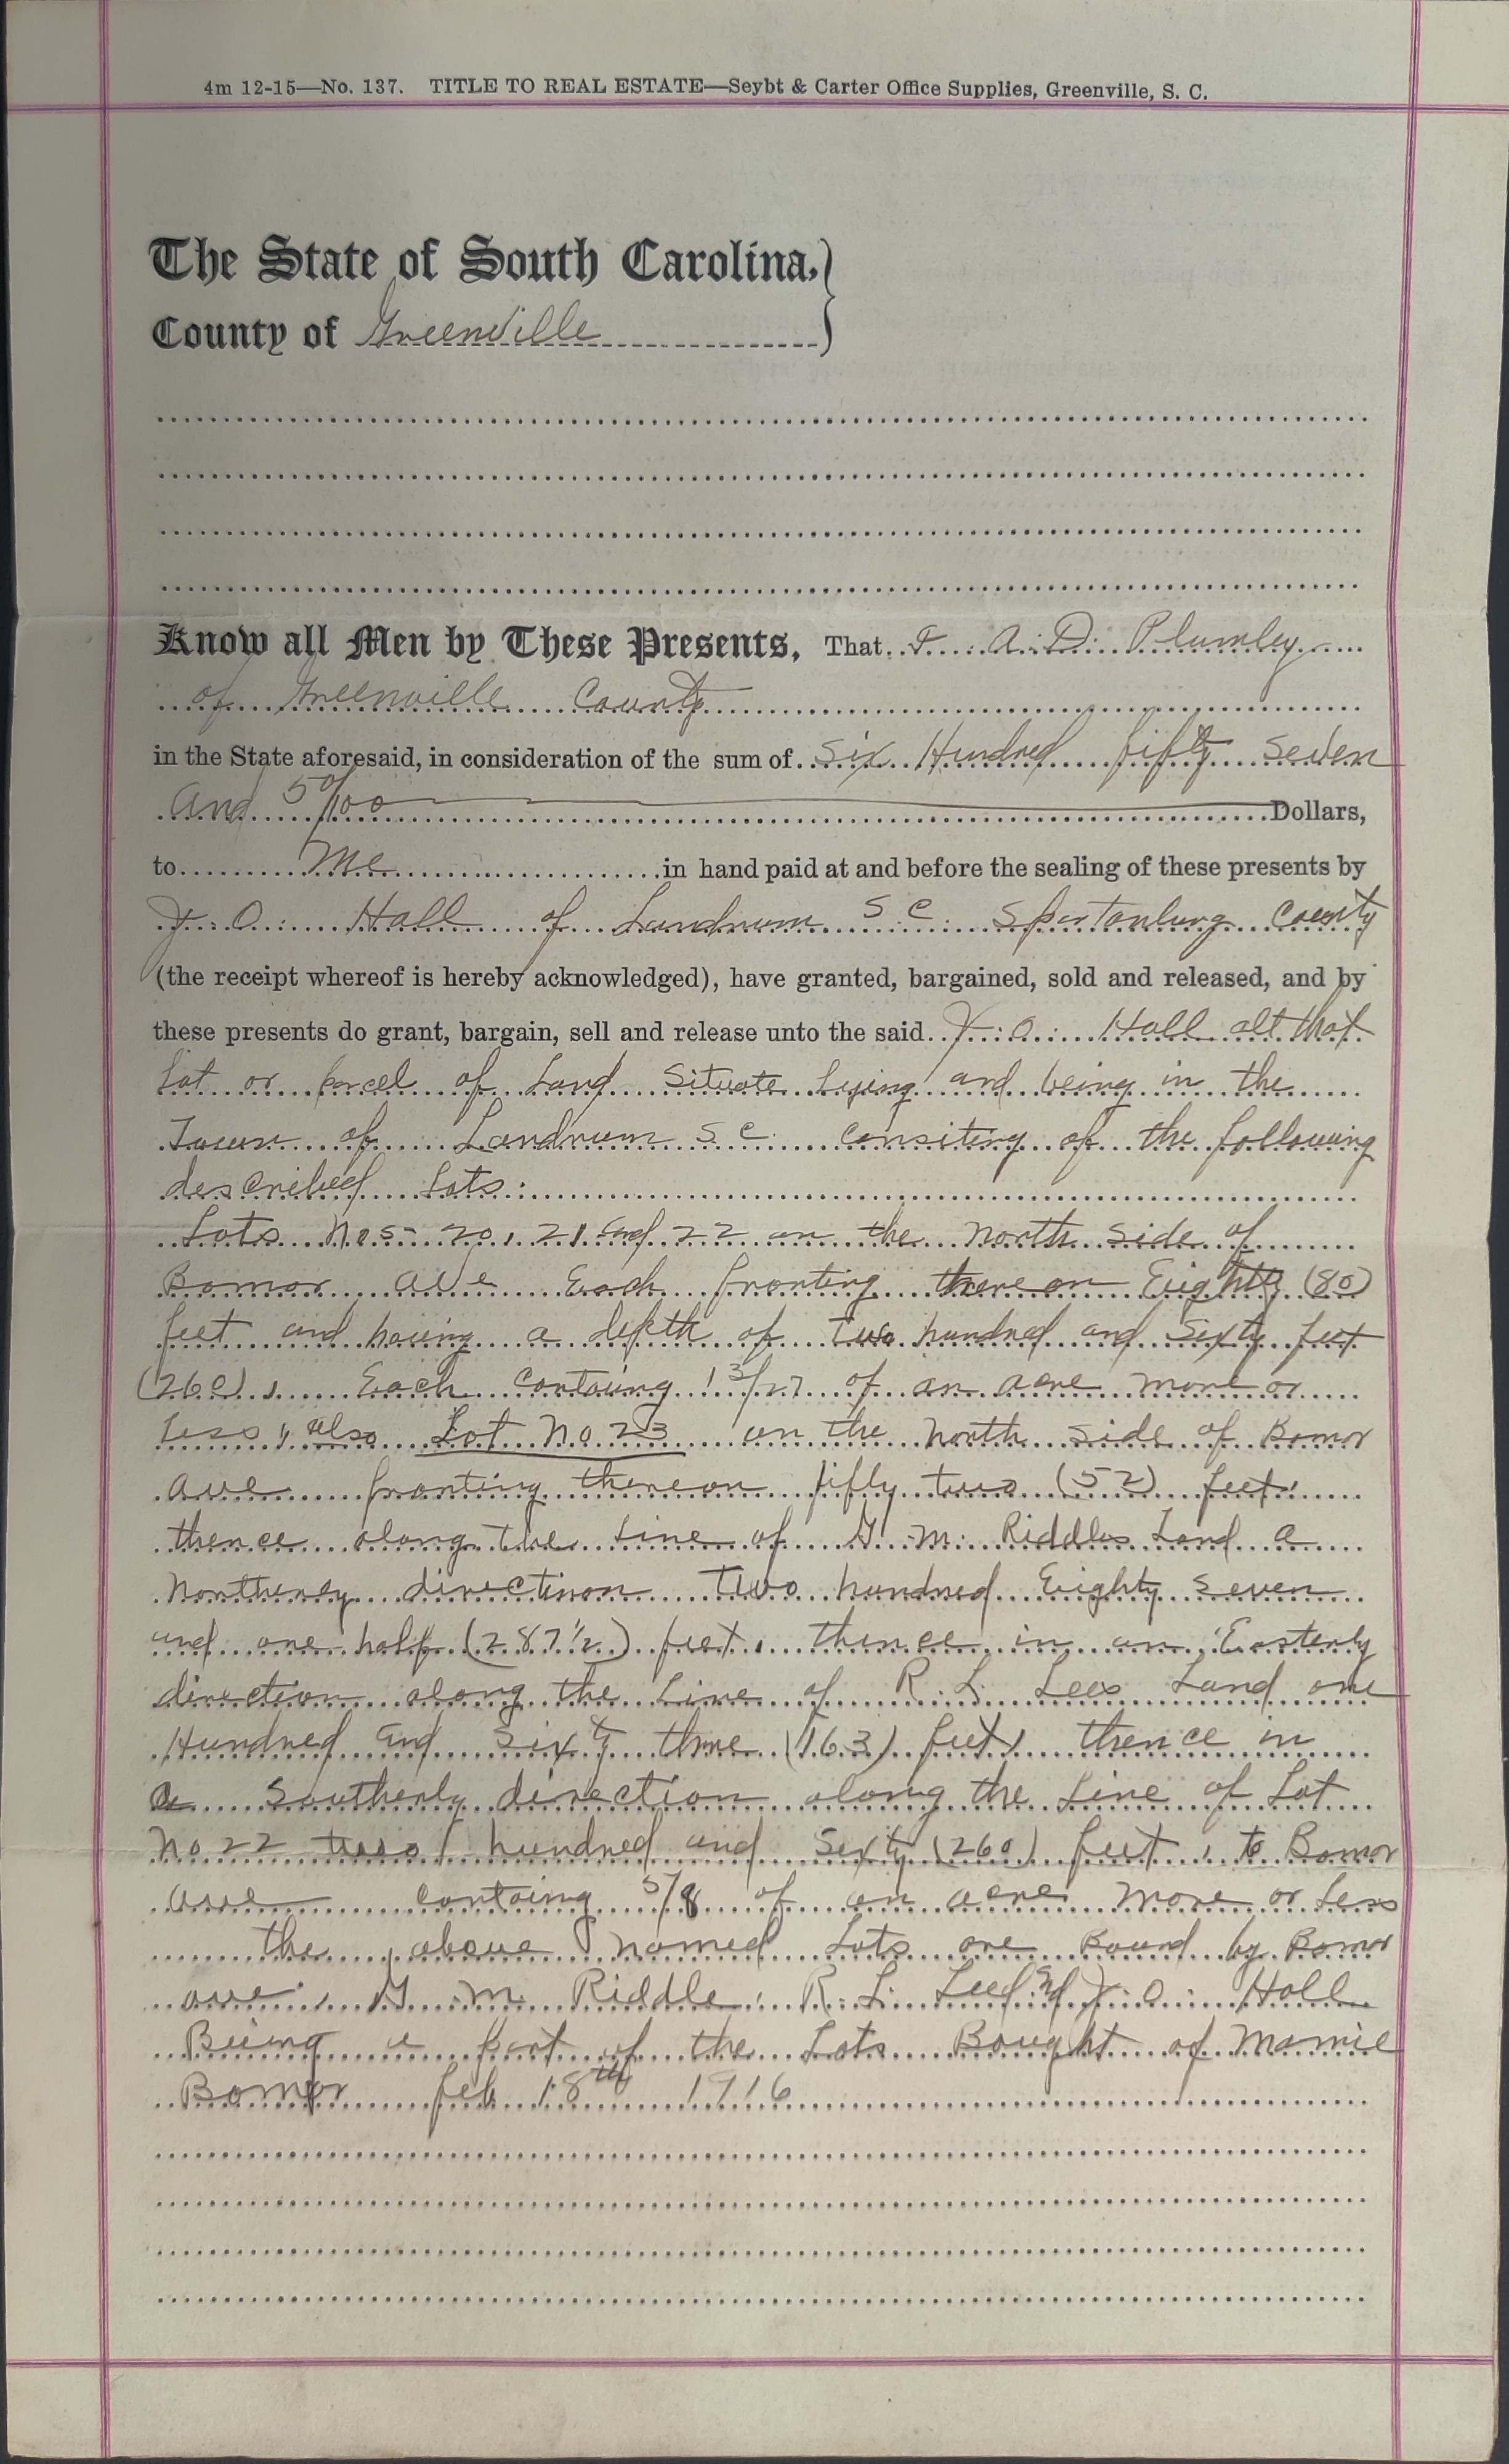 4m 12-15—No. 137. TITLE TO REAL ESTATE—Seybt & Carter Office Supplies, Greenville, S. C.
The State of South Carolina,
County of Greenville
Know all Men by These Presents, That I A. D. Plumley
of Greenville County
in the State aforesaid, in consideration of the sum of Six Hundred fifty Seven
And 50/100 Dollars,
to me in hand paid at and before the sealing of these presents by
J. O. Hall of Landrum S. C. Spartanburg County
(the receipt whereof is hereby acknowledged), have granted, bargained, sold and released, and by
these presents do grant, bargain, sell and release unto the said J. O. Hall all that
Lot or parcel of Land Situate Lying and being in the
Town of Landrum S C consiting of the following
described Lots:
Lots Nos- 20, 21 and 22 on the North side of
Bomar Ave Each fronting thereon Eighty (80)
feet and having a depth of Two hundred and Sixty feet
(260), Each containg 13/27 of an acre more or
Less, also Lot No 23 on the North side of Bomar
Ave fronting thereon fifty two (52) feet,
thence along the Line of G. M. Riddles Land a
Northerly direction Two hundred Eighty seven
and one half (287 1/2) feet, thence in an Easterly
direction along the Line of R. L. Lees Land one
Hundred and Sixty three (163) feet, thence in
a Southerly direction along the Line of Lot
No 22 two hundred and Sixty (260) feet, to Bomar
Ave containg 5/8 of an acre more or Less
the above named Lots are Bound by Bomar
ave, G. M. Riddle, R. L. Lee and J. O. Hall
Being a part of the Lots Bought of Mamie
Bomar feb 18th 1916